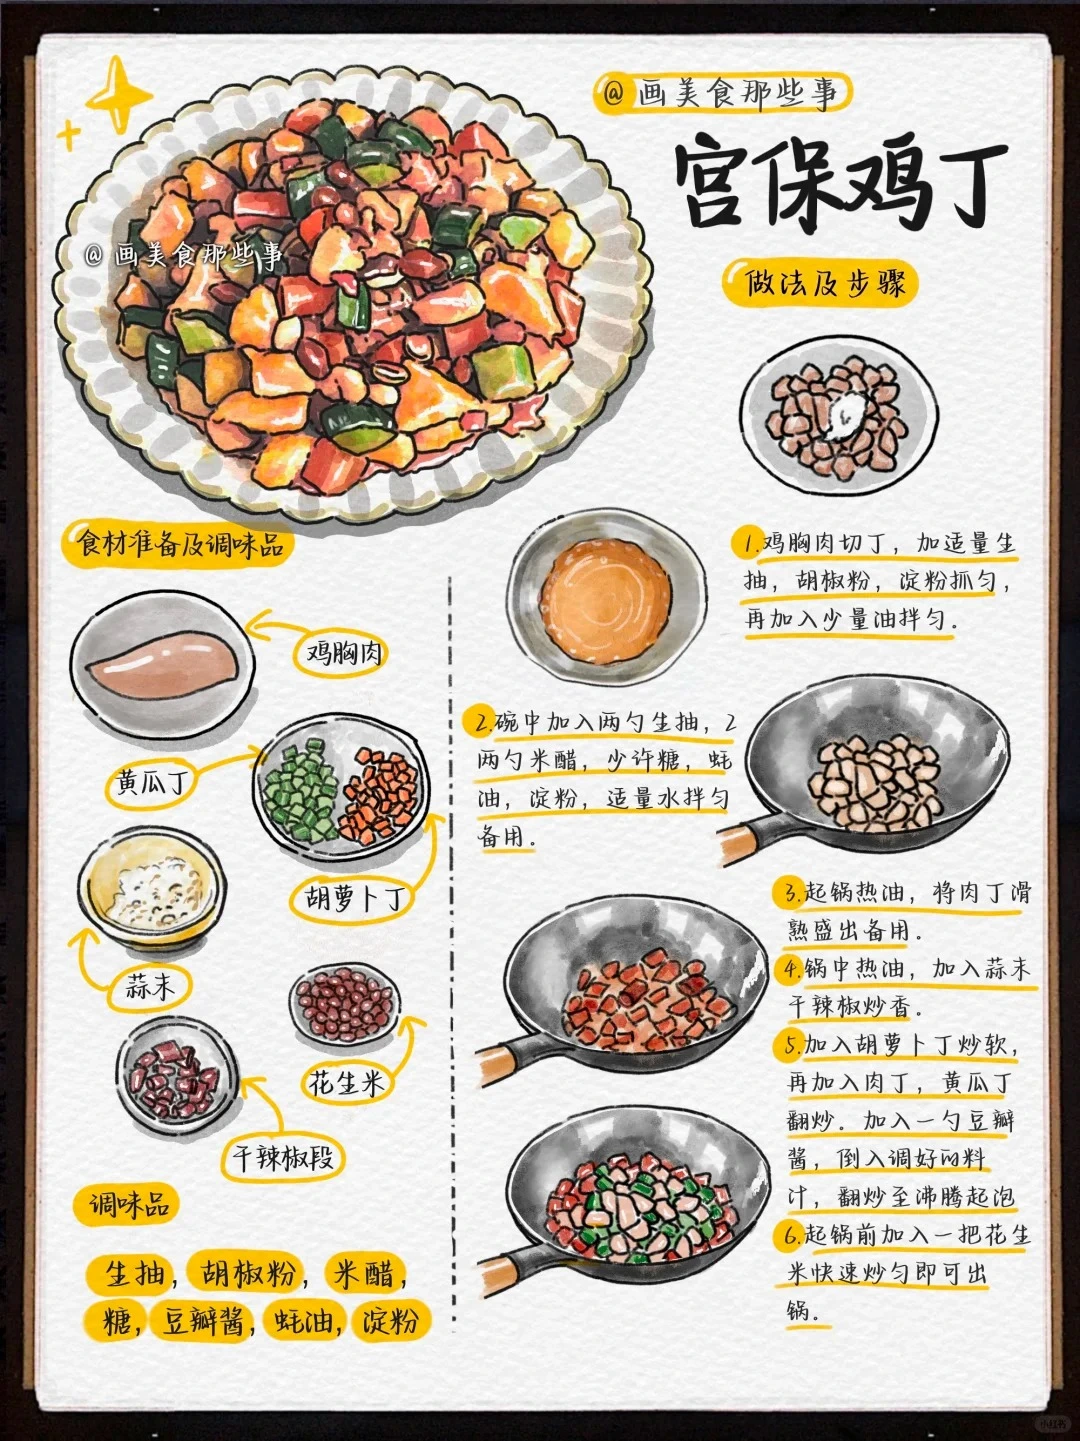 @画美食那些事
宫保鸡丁
@画美食那些事
做法及步骤
食材准备及调味品
鸡胸肉
黄瓜丁
胡萝卜丁
蒜末
花生米
干辣椒段
调味品
生抽，胡椒粉，米醋，
糖，豆瓣酱，蚝油，淀粉
1.鸡胸肉切丁，加适量生
抽，胡椒粉，淀粉抓匀，
再加入少量油拌匀。
2.碗中加入两勺生抽，2
两勺米醋，少许糖，蚝
油，淀粉，适量水拌匀
备用。
3.起锅热油，将肉丁滑
熟盛出备用。
4.锅中热油，加入蒜末
干辣椒炒香。
5.加入胡萝卜丁炒软，
再加入肉丁，黄瓜丁
翻炒。加入一勺豆瓣
酱，倒入调好的料
汁，翻炒至沸腾起泡
6.起锅前加入一把花生
米快速炒匀即可出
锅。
小红书